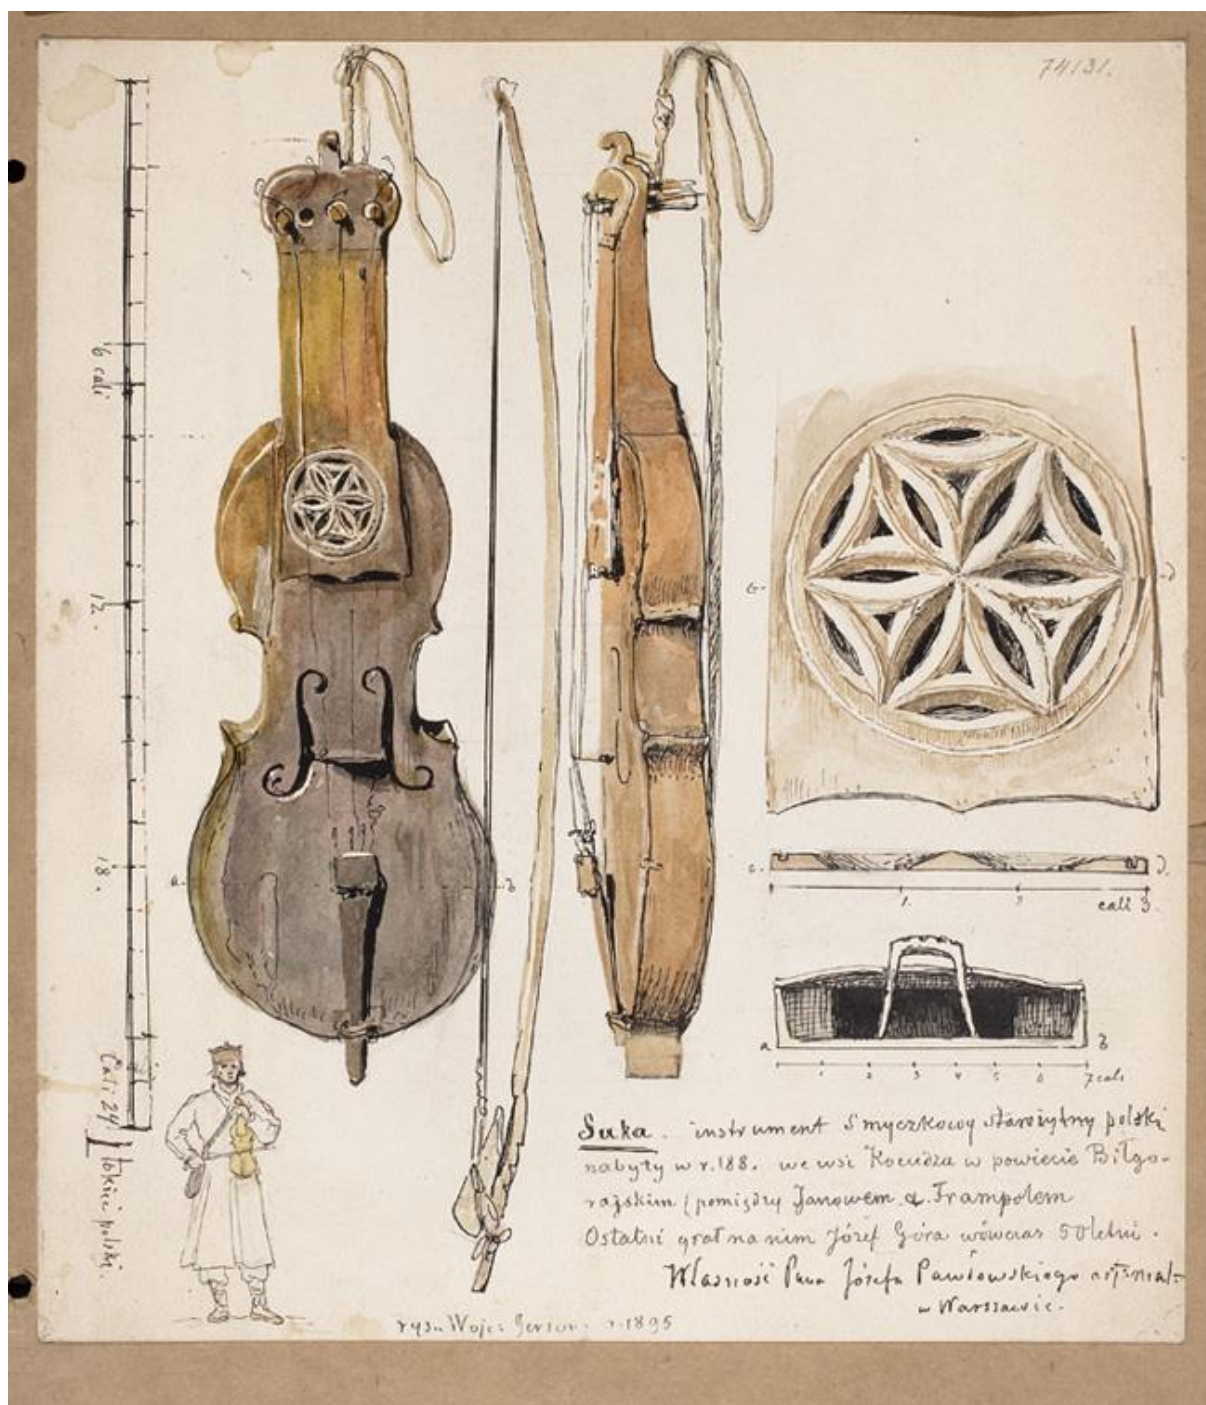 74131.
6 cali
12.
18.
Cali 24 łokieć polski.
a.
b
c.
d
c.
d.
1.
2
cali 3.
a
b
1
2
3
4
5
6
7 cali
Suka. instrument Smyczkowy starożytny polski
nabyty w r. 188. we wsi Kocudza w powiecie Biłgo-
rajskim (pomiędzy Janowem a. Frampolem
Ostatni grał na nim Józef Góra wówczas 50 letni.
Własność Pana Józefa Pawłowskiego
w Warszawie.
rys. Wojc: Gerson r. 1895